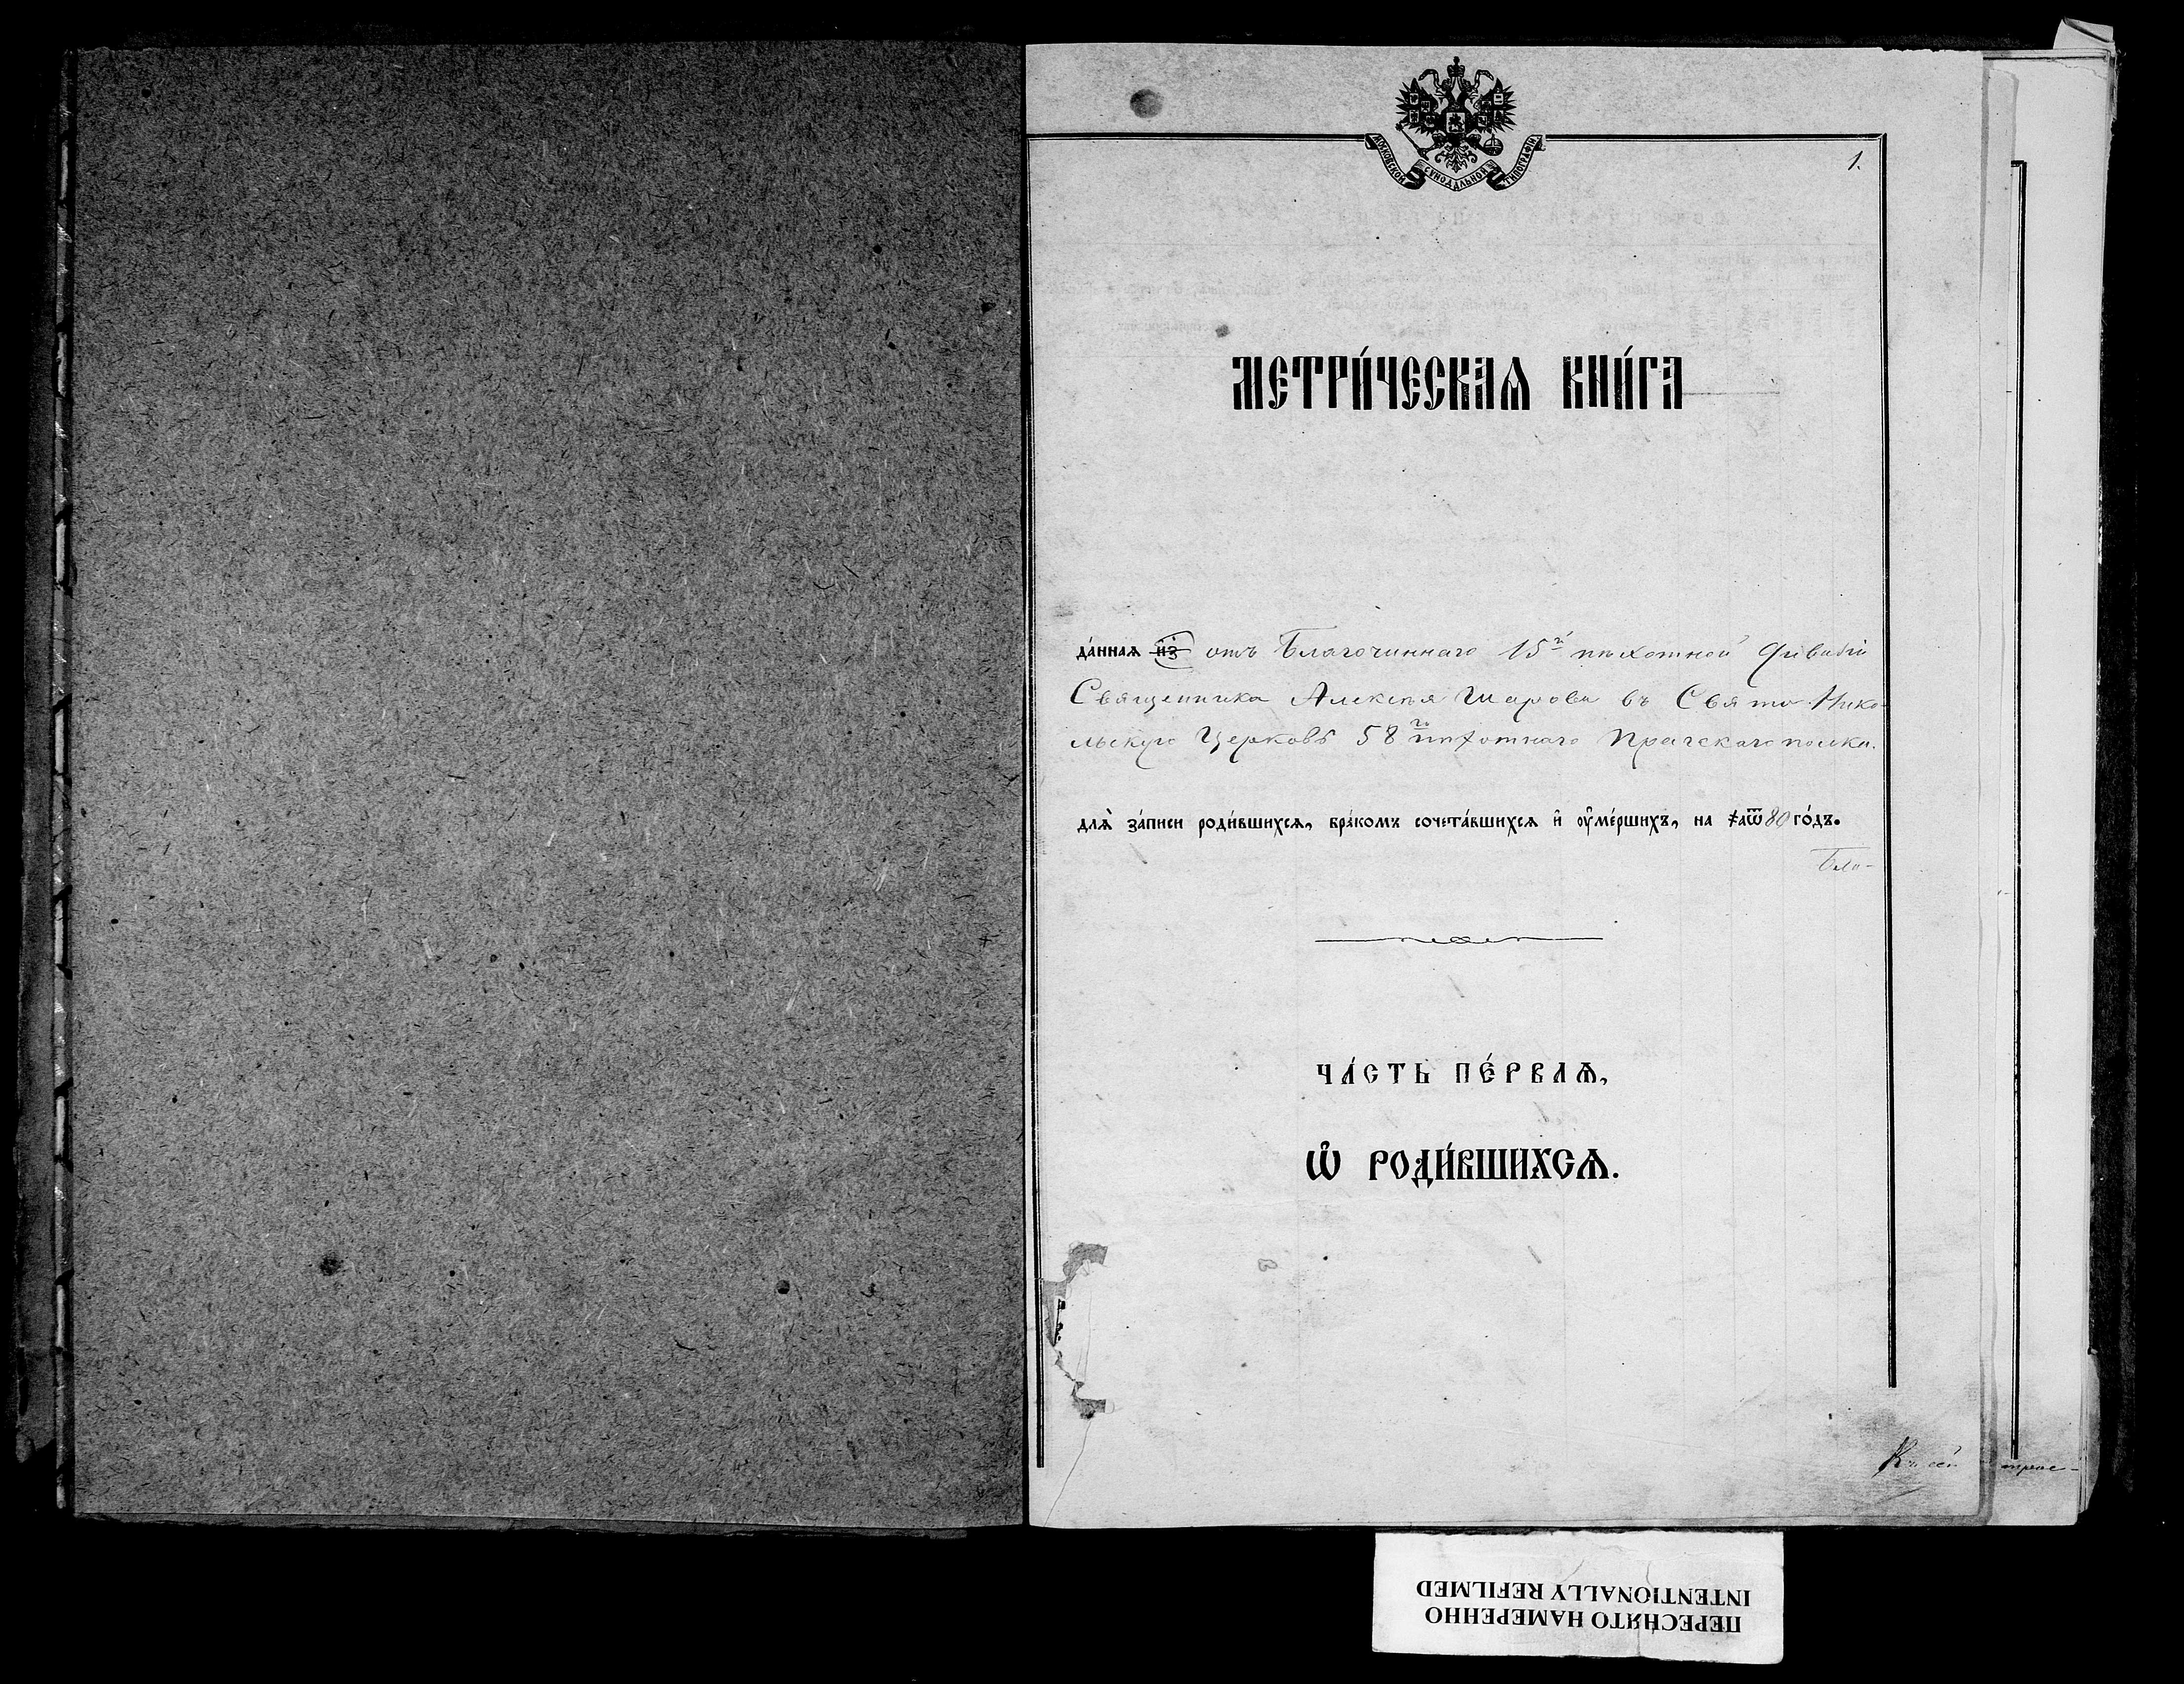 МОСКОВСКОЙ СѴНОДАЛЬНОЙ ТИПОГРАФІИ.
1.
МЕТРИ́ЧЕСКАѦ КНИ́ГА
да́нная и҆з̾ отъ Благочиннаго 15й пѣхотной дивизіи
Священника Алексѣя Шарова въ Свято-Нико-
льскую Церковь 58го пѣхотнаго Прагскаго полка.
для̀ за́писи роди́вшихсѧ, бра́комъ сочета́вшихсѧ и҆ ᲂу҆ме́ршихъ, на ҂аѿ 80 го́дъ.
Бла-
ЧА́СТЬ ПЕ́РВАѦ,
Ѽ РОДИ́ВШИХСѦ.
Къ сей
ПЕРЕСНЯТО НАМЕРЕННО
INTENTIONALLY REFILMED